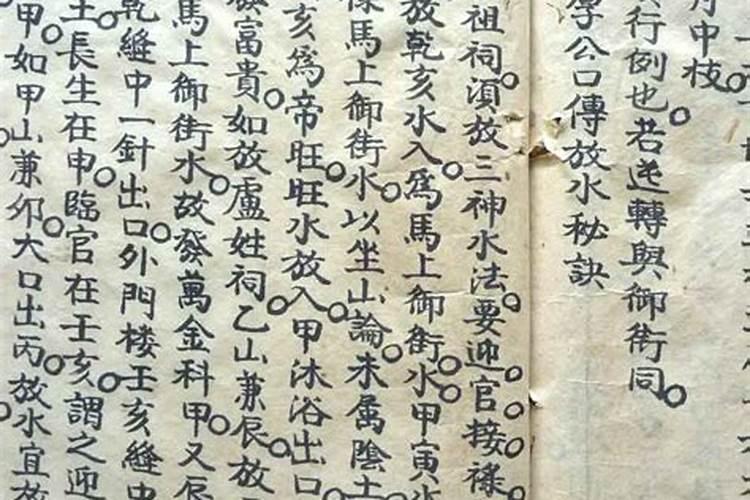 中枝
行例也若逆轉與御街同
李公口傳放水秘訣
祖祠須放三神水法要迎官接祿
放乾亥水入為馬上御街水甲寅水
祿馬上御街水以坐山論未屬陰土
亥為帝旺旺水放入甲沐浴出口
發富貴如放盧姓祠乙山兼辰放
馬上御街水故發萬金科甲又辰
乾縫中一針出口外門楼壬亥縫中
土長生在申臨官在壬亥謂之迎
甲如甲山兼卯大口出丙放水宜放